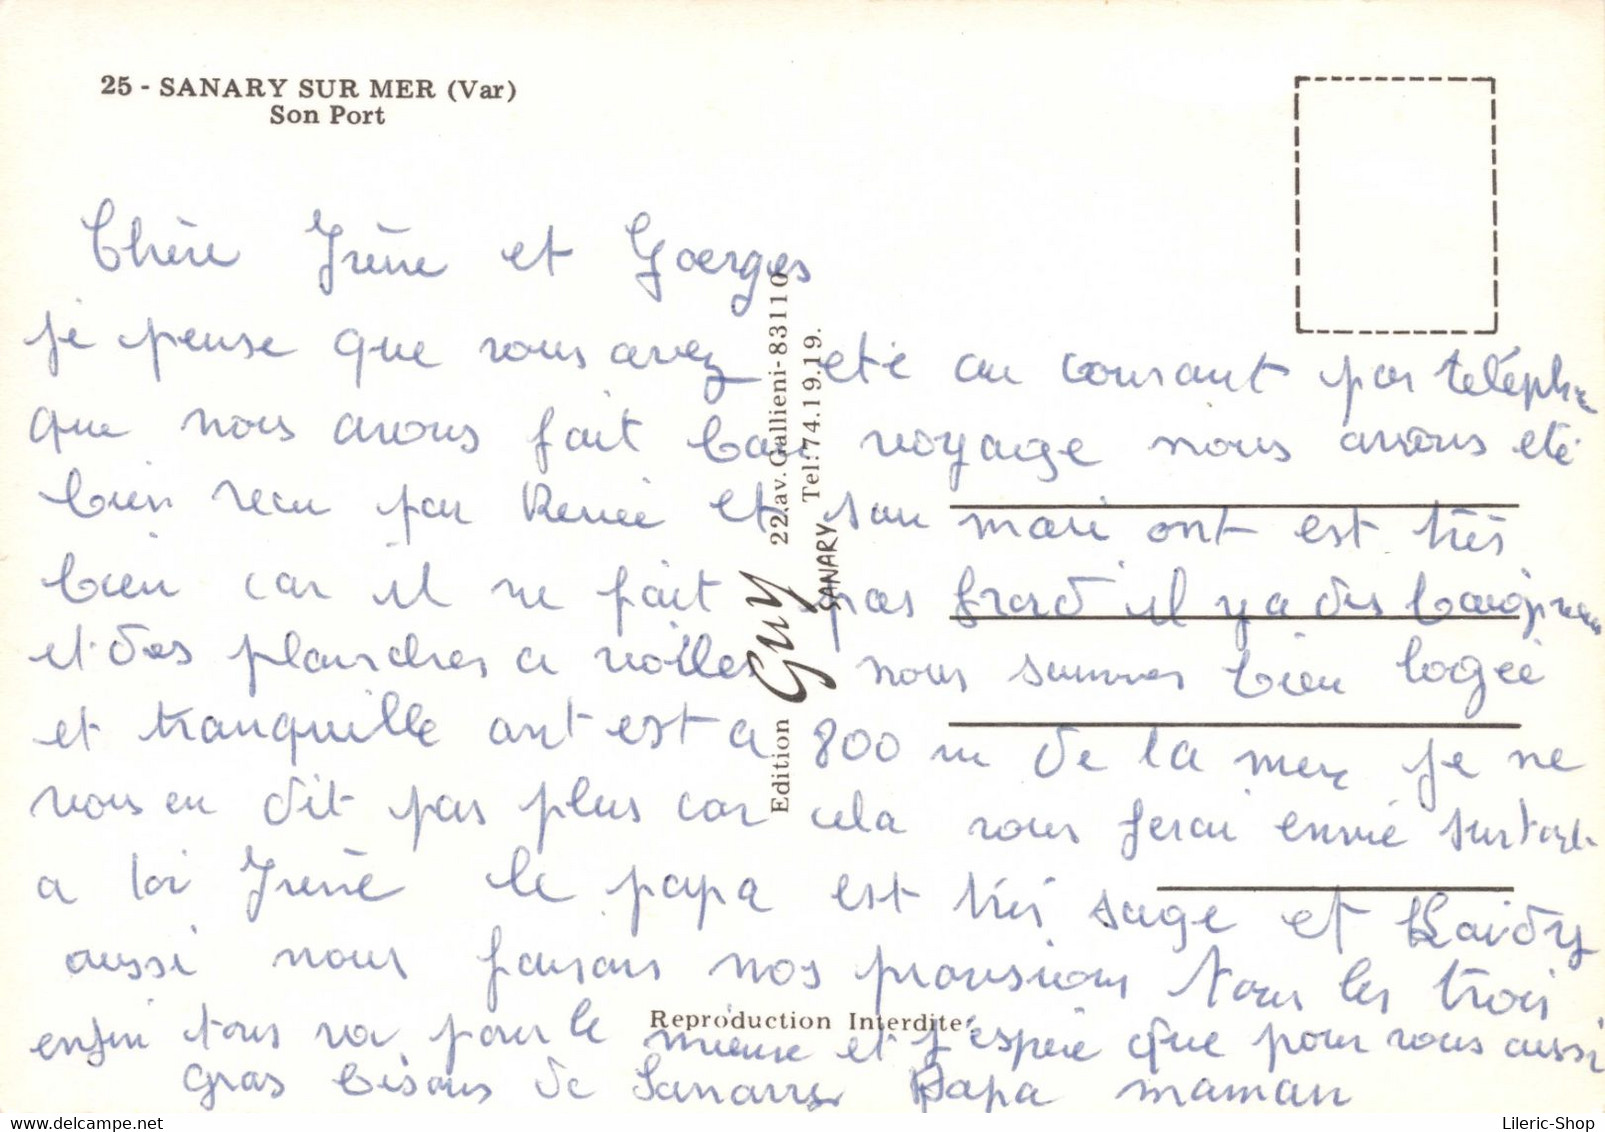 25 - SANARY SUR MER (Var)
Son Port
Chère Irène et Goerges
je pense que vous avez eté au courant par téléph
que nous avons fait bon voyage nous avons eté
bien recu par Renée et son mari ont est très
bien car il ne fait pas froid il y a des baigneurs
et des planches a voilles nous sommes bien logée
et tranquille ont est a 800 m de la mer je ne
vous en dit pas plus car cela vous ferai envie surtout
a toi Irène le papa est très sage et
aussi nous faisons nos provisions tous les trois
enfin tous va pour le mieux et j'espère que pour vous aussi
gros bisous de Sanary Papa maman
Edition Guy 22, av. Gallieni - 83110
SANARY Tel: 74.19.19.
Reproduction Interdite
Lileric-Shop